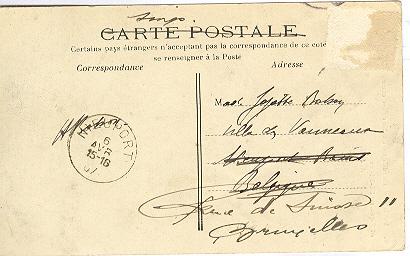 CARTE POSTALE
Certains pays étrangers n'acceptant pas la correspondance de ce coté
se renseigner à la Poste
Correspondance
Adresse
NIEUPORT
6
AVR
15-16
07
Villa des Vanneaux
Nieuport Bains
Belgique
rue de Suisse 11
Bruxelles